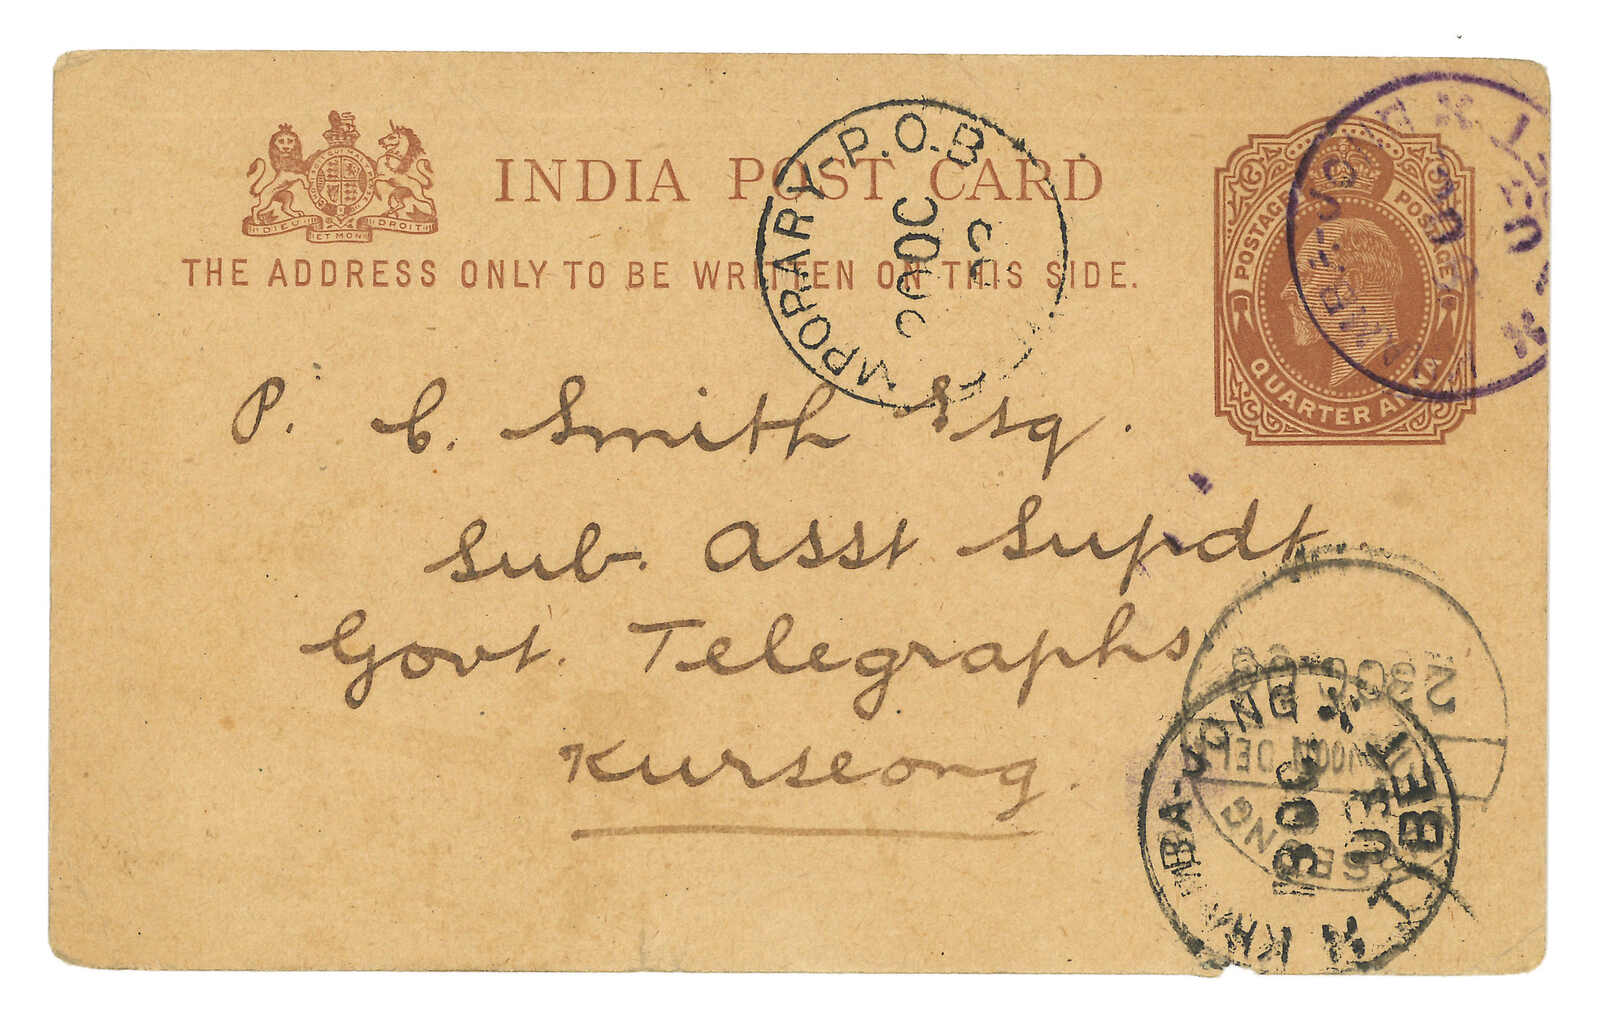 DIEU ET MON DROIT
INDIA POST CARD
THE ADDRESS ONLY TO BE WRITTEN ON THIS SIDE.
POSTAGE POSTAGE
QUARTER ANNA
MPORARY-P.O.B
20 OC
03
P. C. Smith Esq.
Sub. Asst Supdt
Govt. Telegraphs
Kurseong.
MBA-JONG
TIBET
KHAMBA-JONG
TIBET
18 OC
03
SEONG
DEL
23OC.03